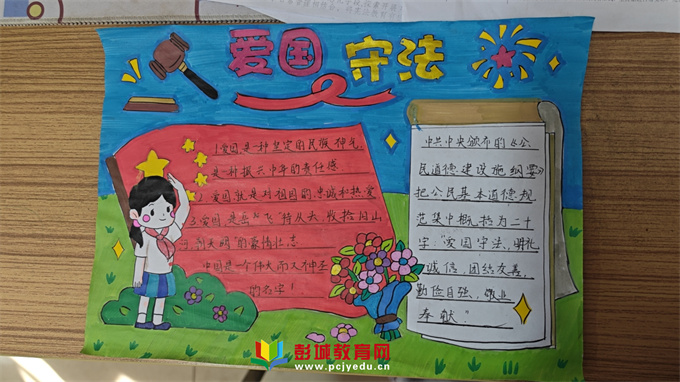 爱国 守法
1.爱国,是一种坚定的民族精神,
是一种振兴中华的责任感
2.爱国就是对祖国的忠诚和热爱
3.爱国是岳飞"待从头,收拾旧山
河,朝天阙"的豪情壮志
中国是一个伟大而又神圣
的名字!
中共中央颁布的《公
民道德建设施纲要》
把公民基本道德规
范集中概括为二十
字:"爱国守法,明礼
诚信,团结友善,
勤俭自强,敬业
奉献。"
彭城教育网
www.pcjyedu.cn